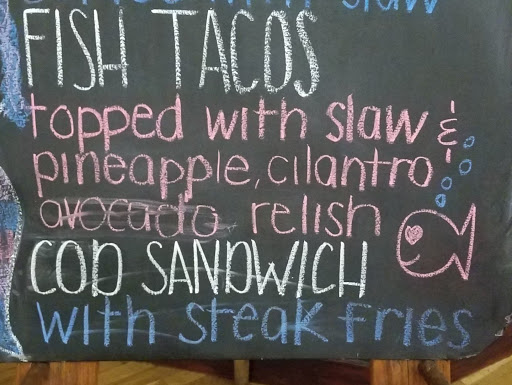 with slaw
FISH TACOS
topped with slaw &
pineapple, cilantro
avocado relish
COD SANDWICH
with steak fries